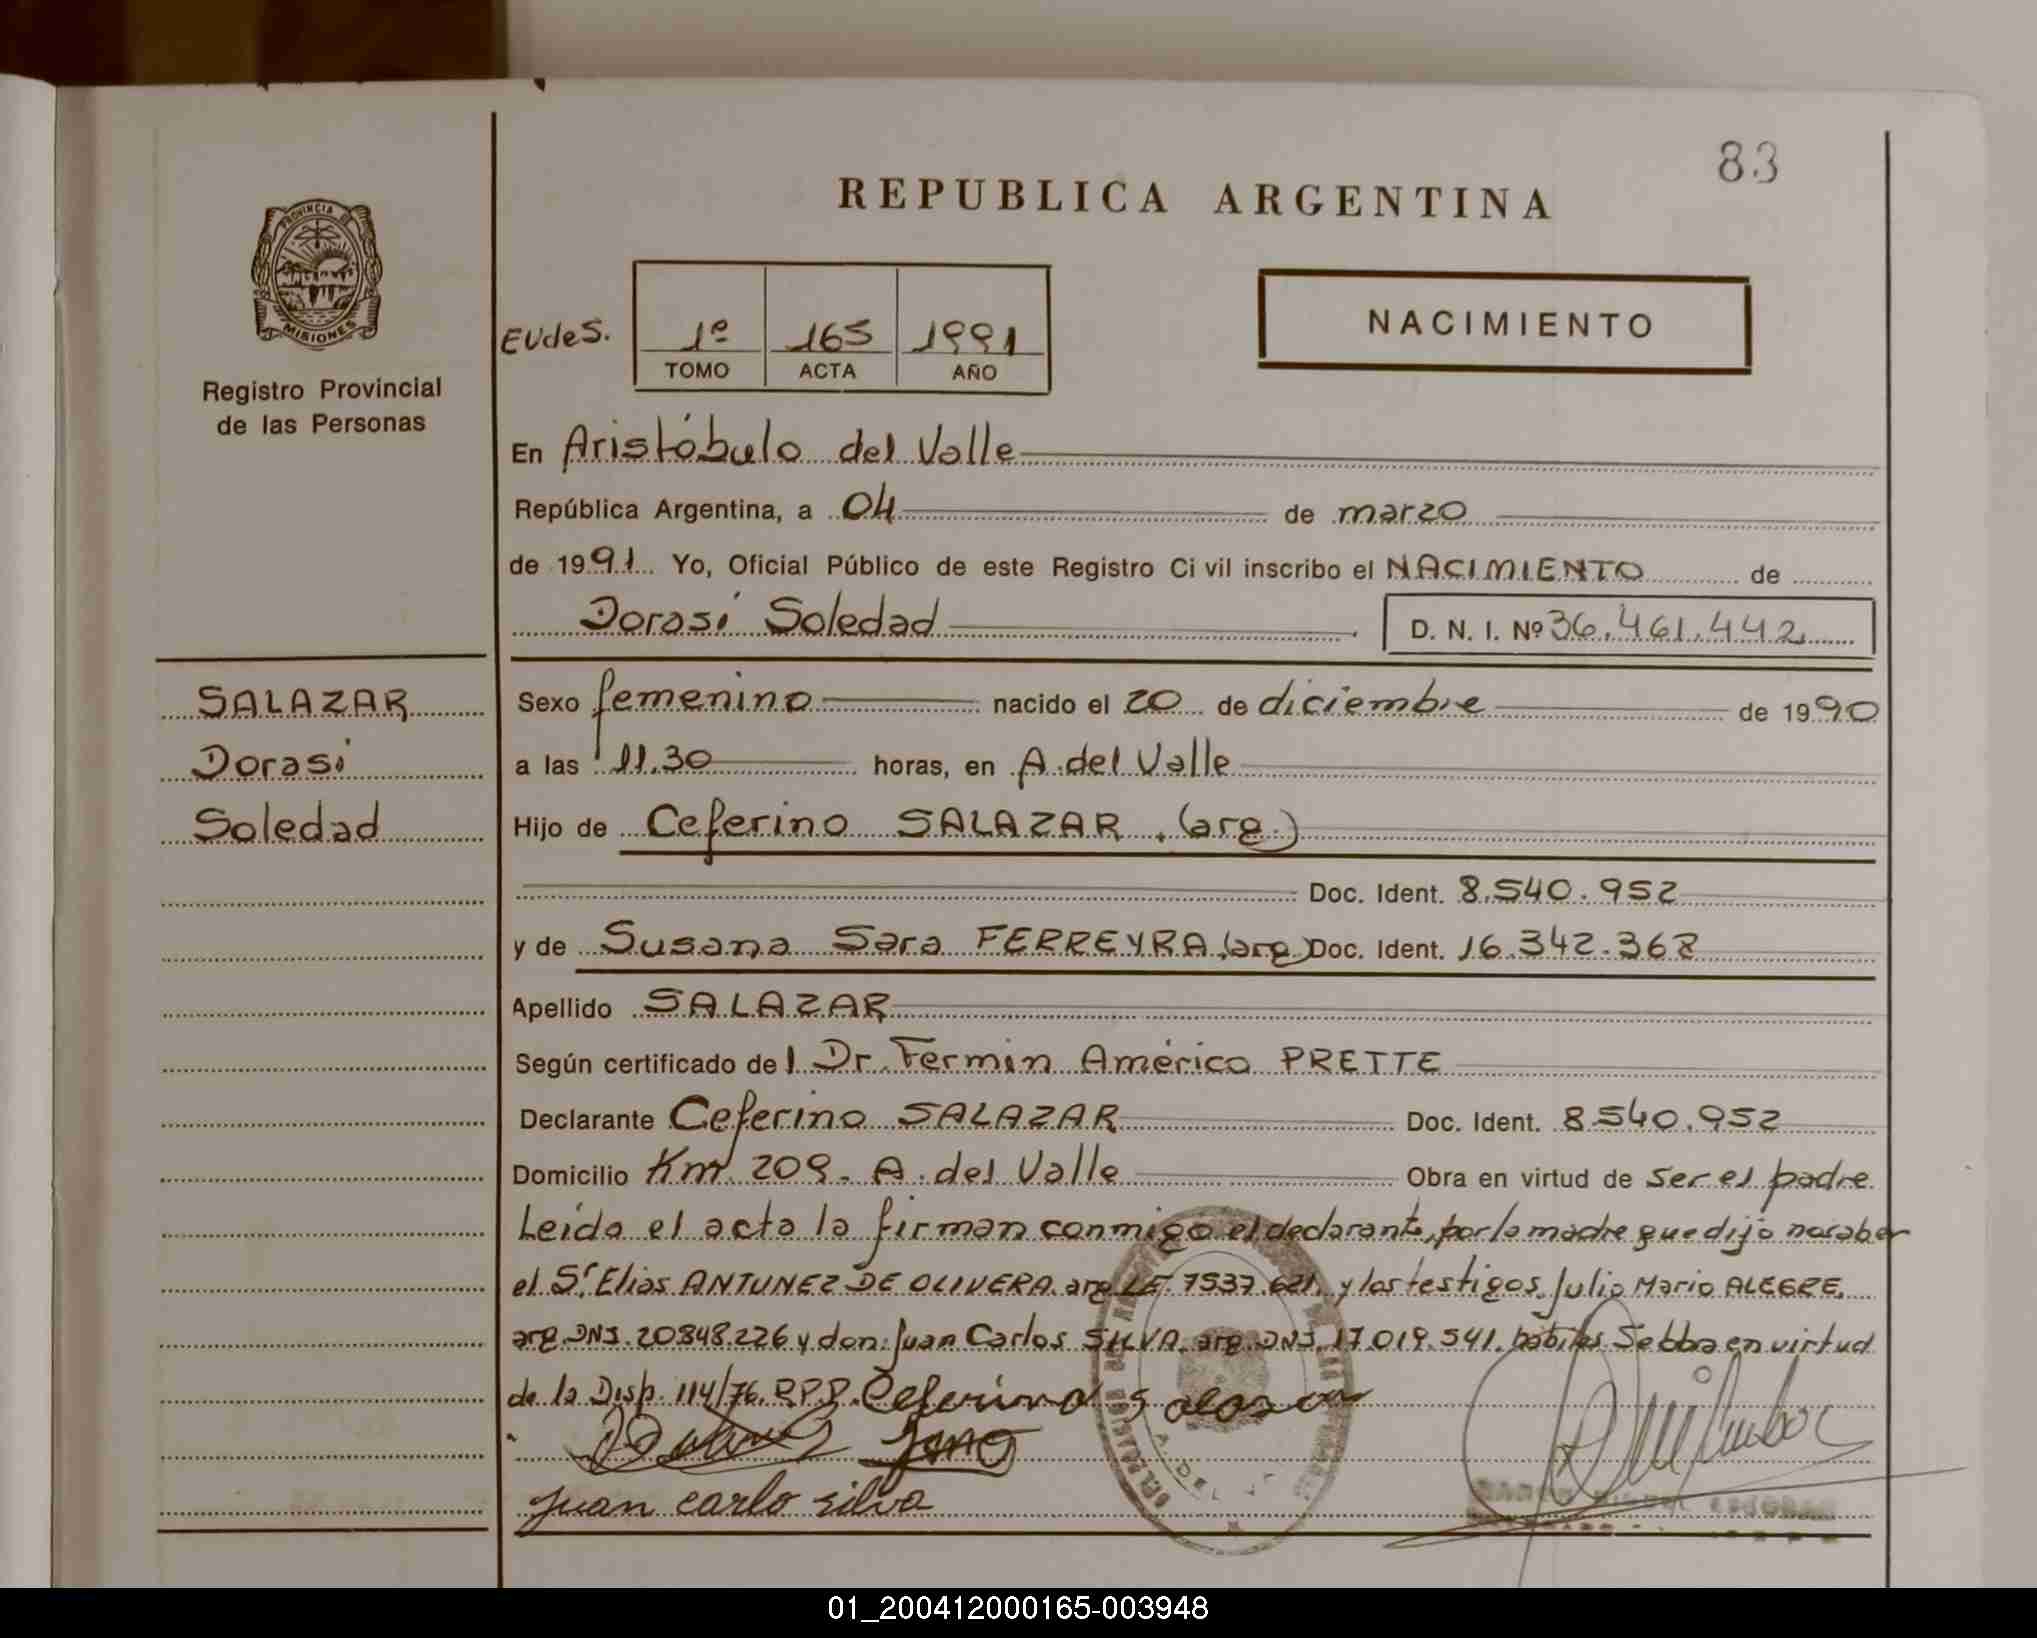 83
REPUBLICA ARGENTINA
PROVINCIA DE
MISIONES
Registro Provincial
de las Personas
EUdeS.
1º 165 1991
TOMO ACTA AÑO
NACIMIENTO
En Aristóbulo del Valle
República Argentina, a 04 de marzo
de 1991 Yo, Oficial Público de este Registro Civil inscribo el NACIMIENTO de
Dorasi Soledad D. N. I. Nº 36.461.442
SALAZAR
Dorasi
Soledad
Sexo femenino nacido el 20 de diciembre de 1990
a las 11.30 horas, en A. del Valle
Hijo de Ceferino SALAZAR. (arg.)
Doc. Ident. 8.540.952
y de Susana Sara FERREYRA.(arg) Doc. Ident. 16.342.368
Apellido SALAZAR
Según certificado del Dr. Fermin Américo PRETTE
Declarante Ceferino SALAZAR Doc. Ident. 8.540.952
Domicilio Km. 209. A. del Valle Obra en virtud de ser el padre.
Leída el acta la firman conmigo el declarante, por la madre que dijo no saber
el Sr. Elias ANTUNEZ DE OLIVERA. arg LE. 7537.621. y los testigos. Julio Mario ALEGRE.
arg. DNI. 20848.226 y don: Juan Carlos SILVA. arg. DNI. 17.019.541. hábiles. Se obra en virtud
de la Disp. 114/76. R.P.P. Ceferino Salazar
Juan carlo silva
A. DEL
01_200412000165-003948